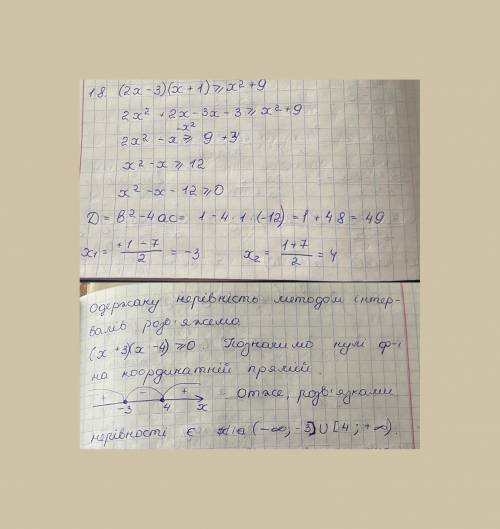 18. (2x-3)(x+1)⩾x²+9
2x²+2x-3x-3⩾x²+9
2x²-x-x²⩾9+3
x²-x⩾12
x²-x-12⩾0
D=b²-4ac= 1-4·1·(-12)=1+48=49
x₁= (+1-7)/2 =-3 x₂= (1+7)/2 =4
одержану нерівність методом інтер-
валів розв'яжемо.
(x+3)(x-4)⩾0. Позначимо нулі ф-ї
на координатній прямій.
+ - + -3 4 x Отже, розв'язками
нерівності є (-∞;-3]∪[4;+∞).